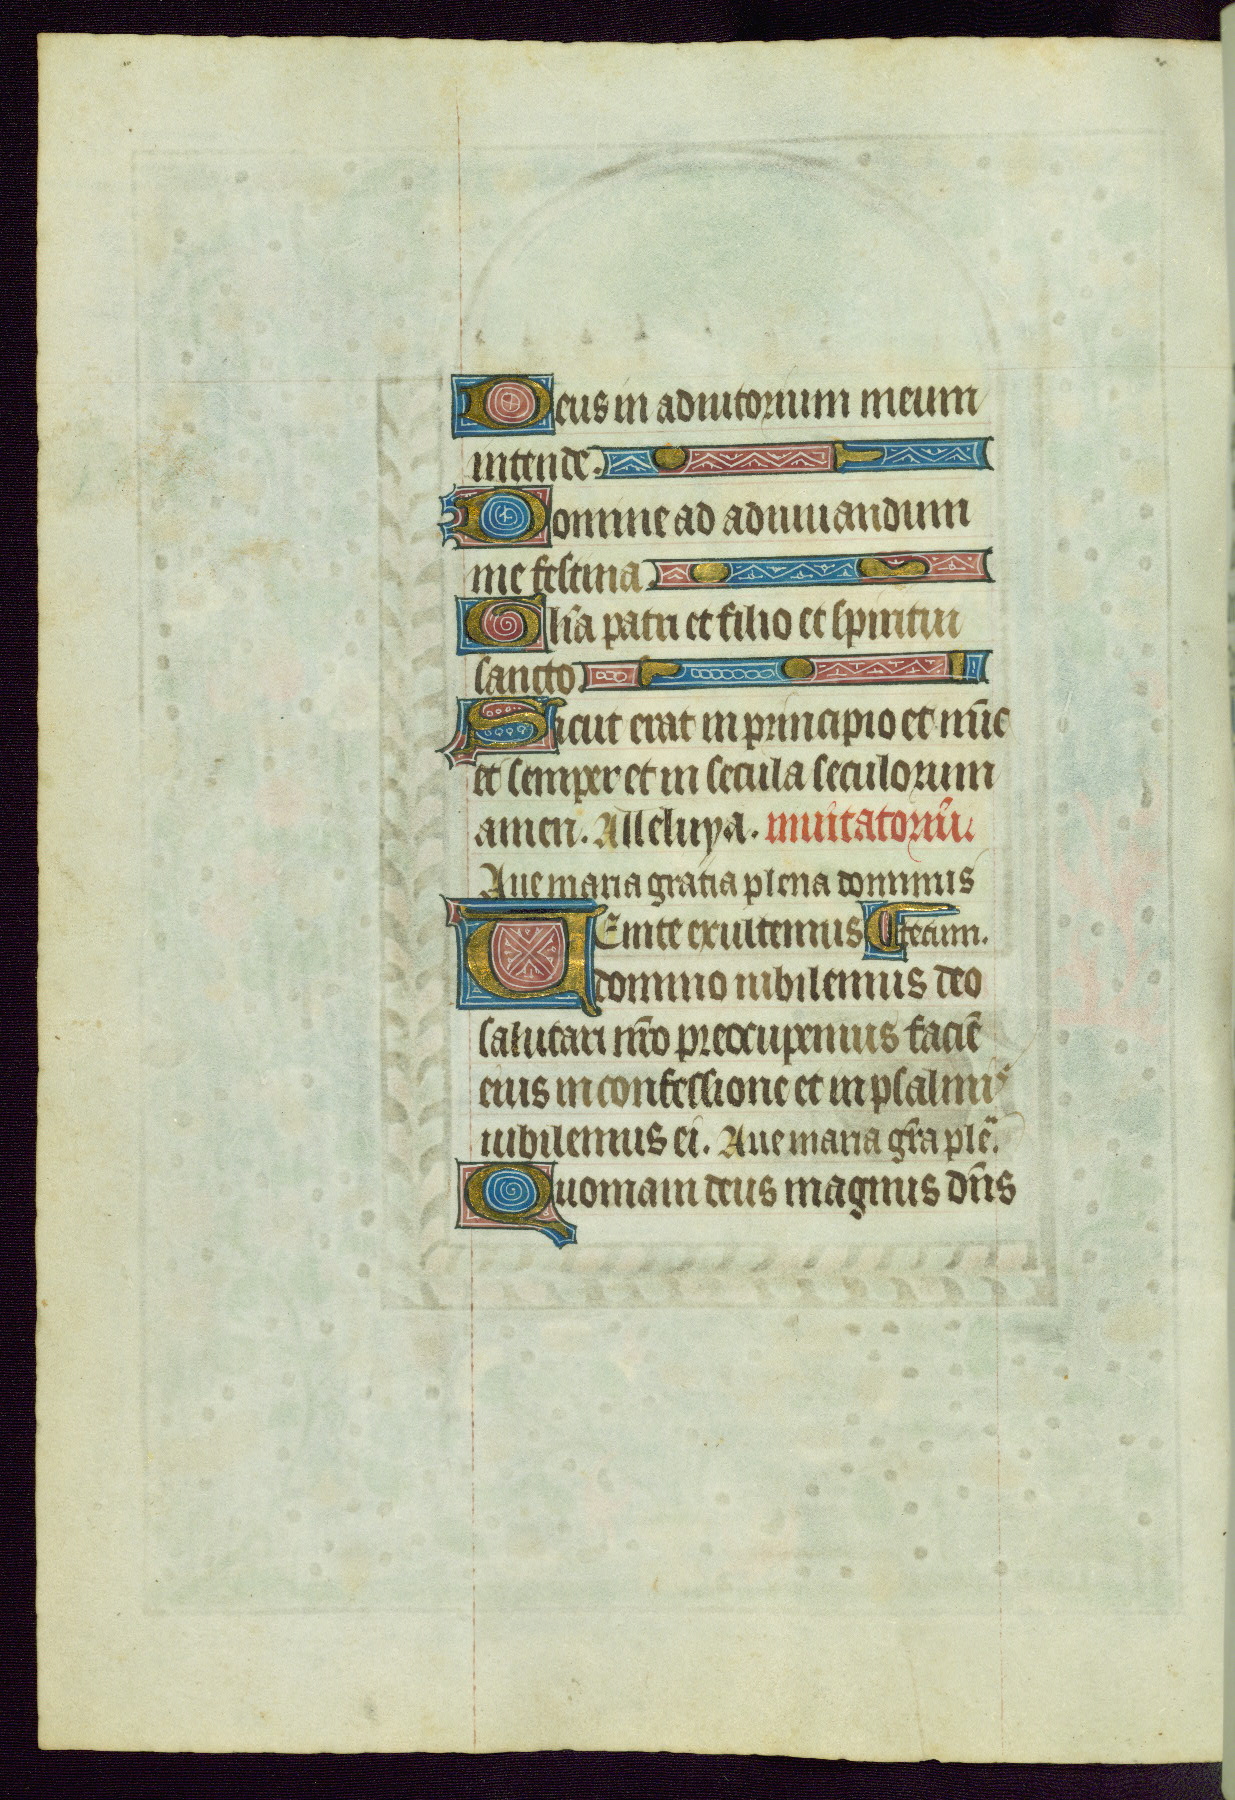 Deus in adiutorium meum
intende.
Domine ad adiuuandum
me festina.
Gl̄ia patri et filio et spiritui
sancto
Sicut erat in principio et nūc
et semper et in secula seculorum
amen. Alleluya. inuitatoriū.
Aue maria gratia plena dominus
UEnite exultemus tecum.
domino iubilemus deo
salutari nr̄o preocupemus faciē
eius in confessione et in psalmis
iubilemus ei. Aue maria gr̄a plē.
Quoniam deus magnus dn̄s